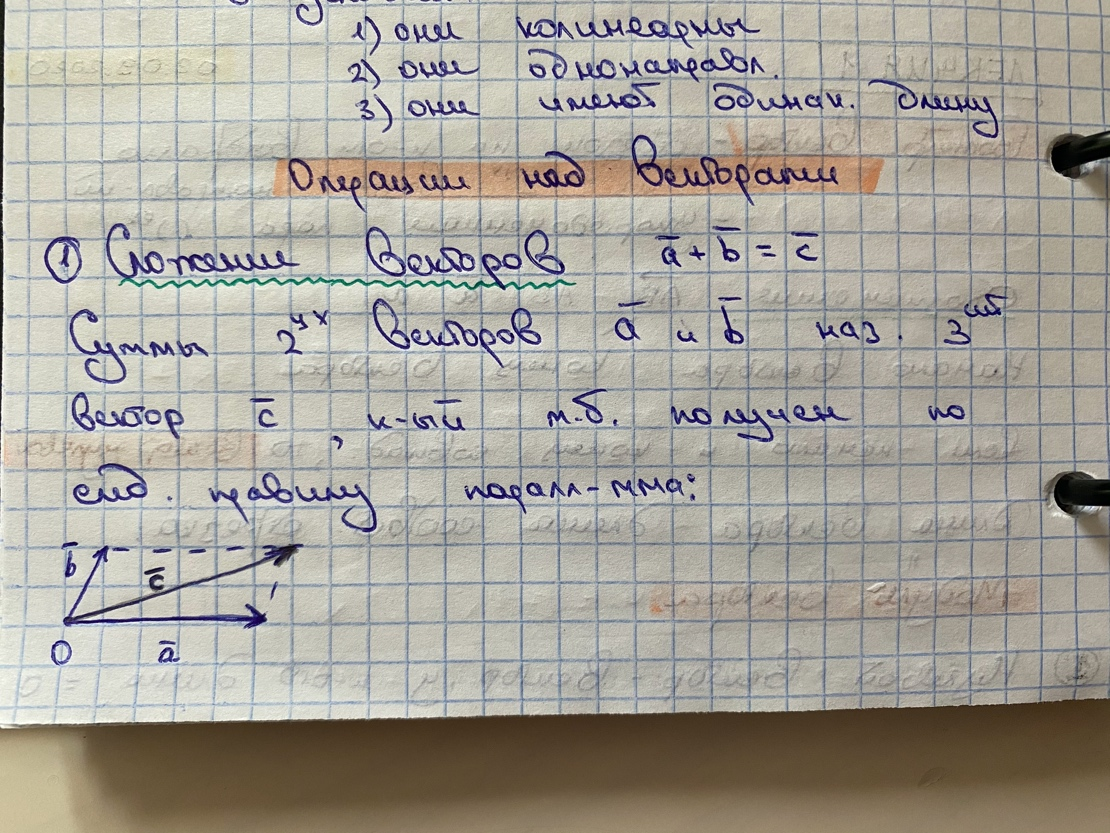 1) они колинеарны
2) они однонаправл.
3) они имеют одинак. длину
Операции над векторами
① Сложение векторов a̅ + b̅ = c̅
Суммы 2ух векторов a̅ и b̅ наз. 3ий
вектор c̅, к-ый м.б. получен по
след. правилу паралл-мма:
b̅
c̅
O a̅